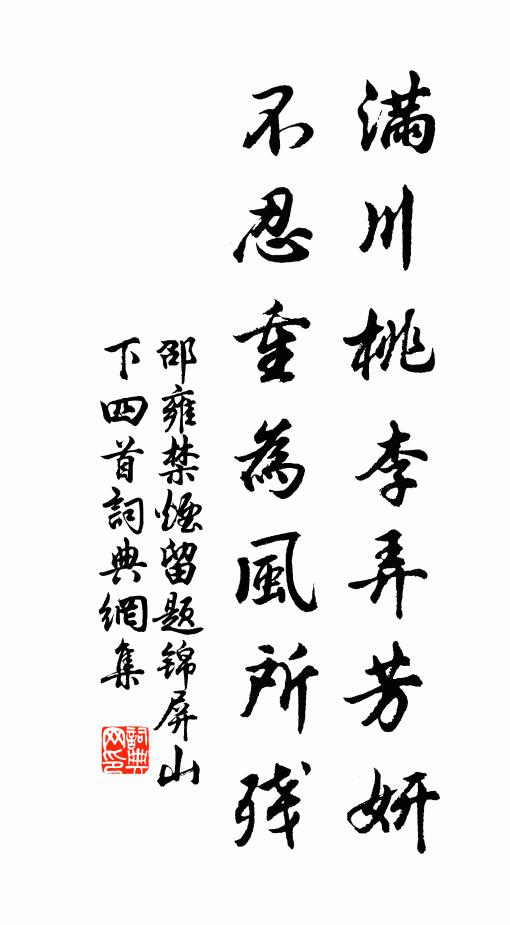 滿川桃李弄芳妍
不忍重為風所残
邵雍禁煙留题锦屏山
下四首詞典網集
詞典
网印